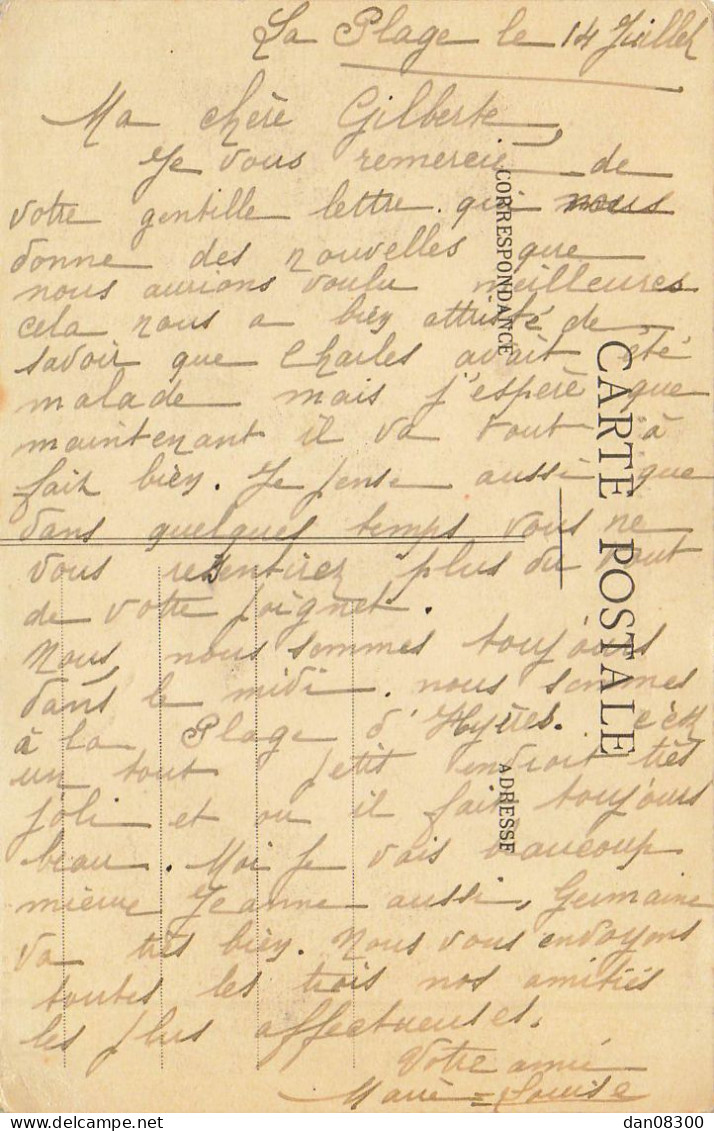 La Plage le 14 Juillet
Ma chère Gilberte,
Je vous remercie de
votre gentille lettre qui nous
donne des nouvelles que
nous aurions voulu meilleures
cela nous a bien attristé de
savoir que Charles avait été
malade mais j'espère que
maintenant il va tout à
fait bien. Je pense aussi que
dans quelques temps vous ne
vous resentirez plus du tout
de votre poignet.
Nous nous sommes toujours
dans le midi. nous sommes
à la Plage d'Hyères. c'est
un tout petit endroit très
joli et ou il fait toujours
beau. Moi je vais beaucoup
mieux Jeanne aussi, Germaine
va très bien. Nous vous envoyons
toutes les trois nos amitiés
les plus affectueuses.
Votre amie
Marie=Louise
CORRESPONDANCE
CARTE POSTALE
ADRESSE
dan08300